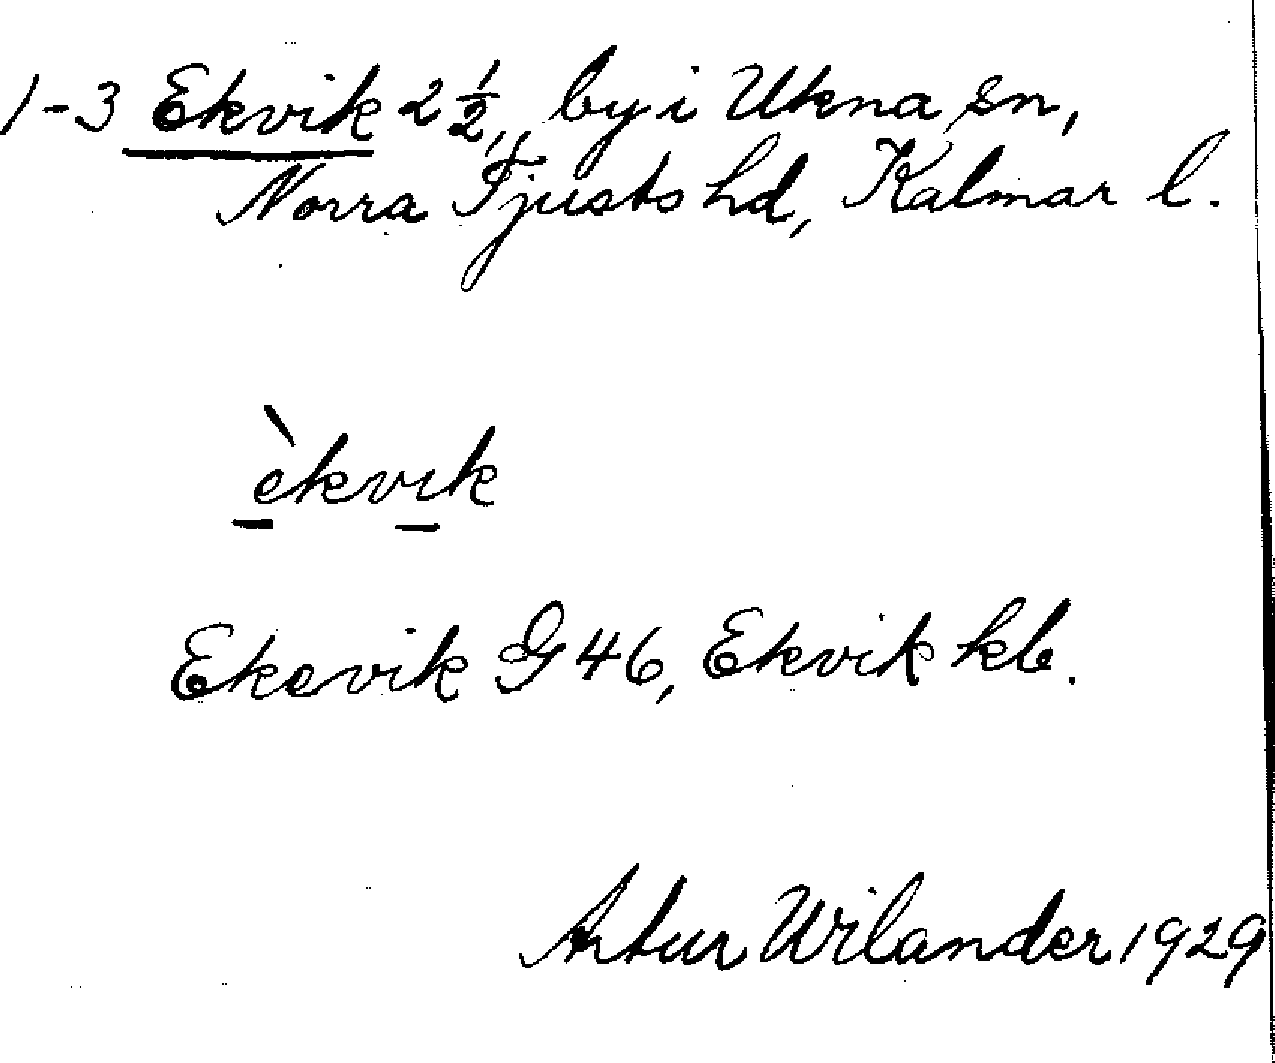 1-3 Ekvik 2 1/2, by i Ukna sn,
Norra Tjusts hd, Kalmar l.
èkvık
Ekevik G 46, Ekvik kb.
Artur Wilander 1929